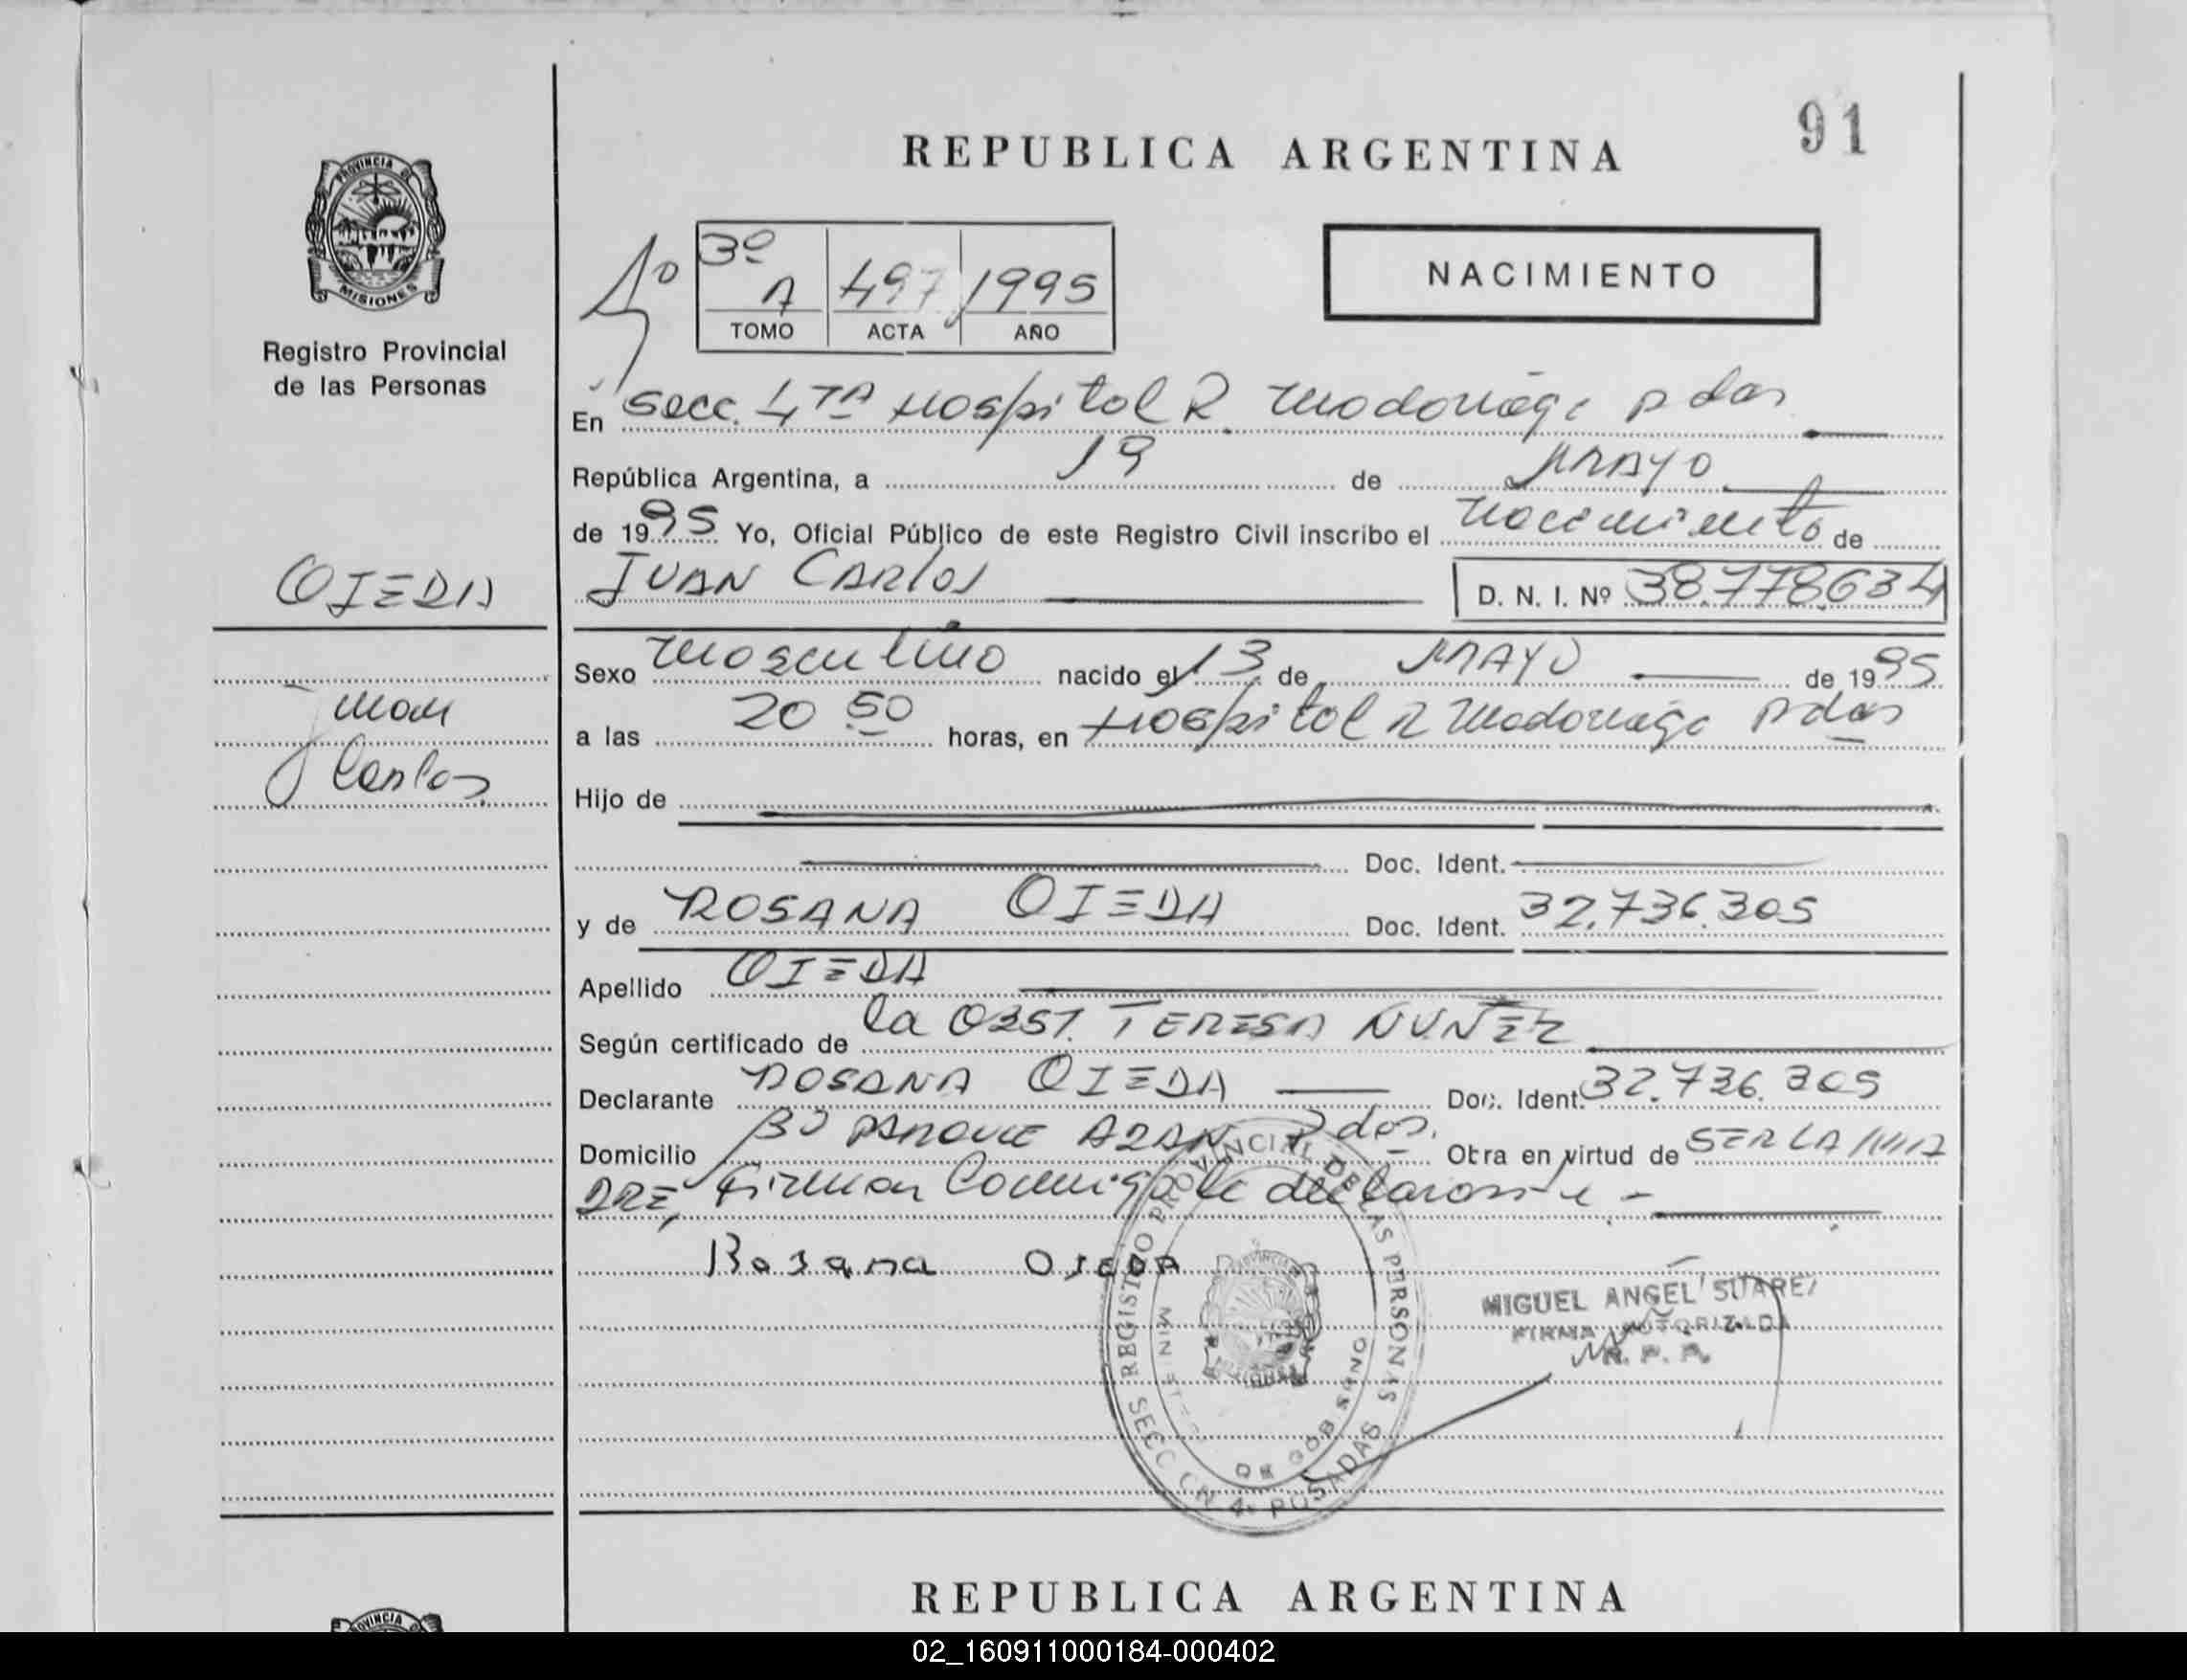 91
REPUBLICA ARGENTINA
PROVINCIA DE
MISIONES
Registro Provincial
de las Personas
4º
3º
A 497 1995
TOMO ACTA AÑO
NACIMIENTO
En Secc. 4TA Hospital R. Madariaga Pdas
República Argentina, a 19 de MAYO
de 1995 Yo, Oficial Público de este Registro Civil inscribo el nacimiento de
OJEDA
JUAN CARLOS D. N. I. Nº 38.778.634
Sexo masculino nacido el 13 de MAYO de 1995
Juan
a las 20 50 horas, en Hospital R Madariaga Pdas
Carlos
Hijo de
Doc. Ident.
y de ROSANA OJEDA Doc. Ident. 32.736.305
Apellido OJEDA
Según certificado de la OBST. TERESA NUÑEZ
Declarante ROSANA OJEDA Doc. Ident. 32.736.305
Domicilio Bº PARQUE ADAN Pdas. Obra en virtud de SER LA MA
DRE, Firman Conmigo la declarante -
Rosana OJEDA
REGISTRO PROVINCIAL DE LAS PERSONAS
SECC CN 4ª POSADAS
DE GOBIERNO
MISIONES
MIGUEL ANGEL SUAREZ
FIRMA AUTORIZADA
R. P. P.
REPUBLICA ARGENTINA
PROVINCIA
02_160911000184-000402